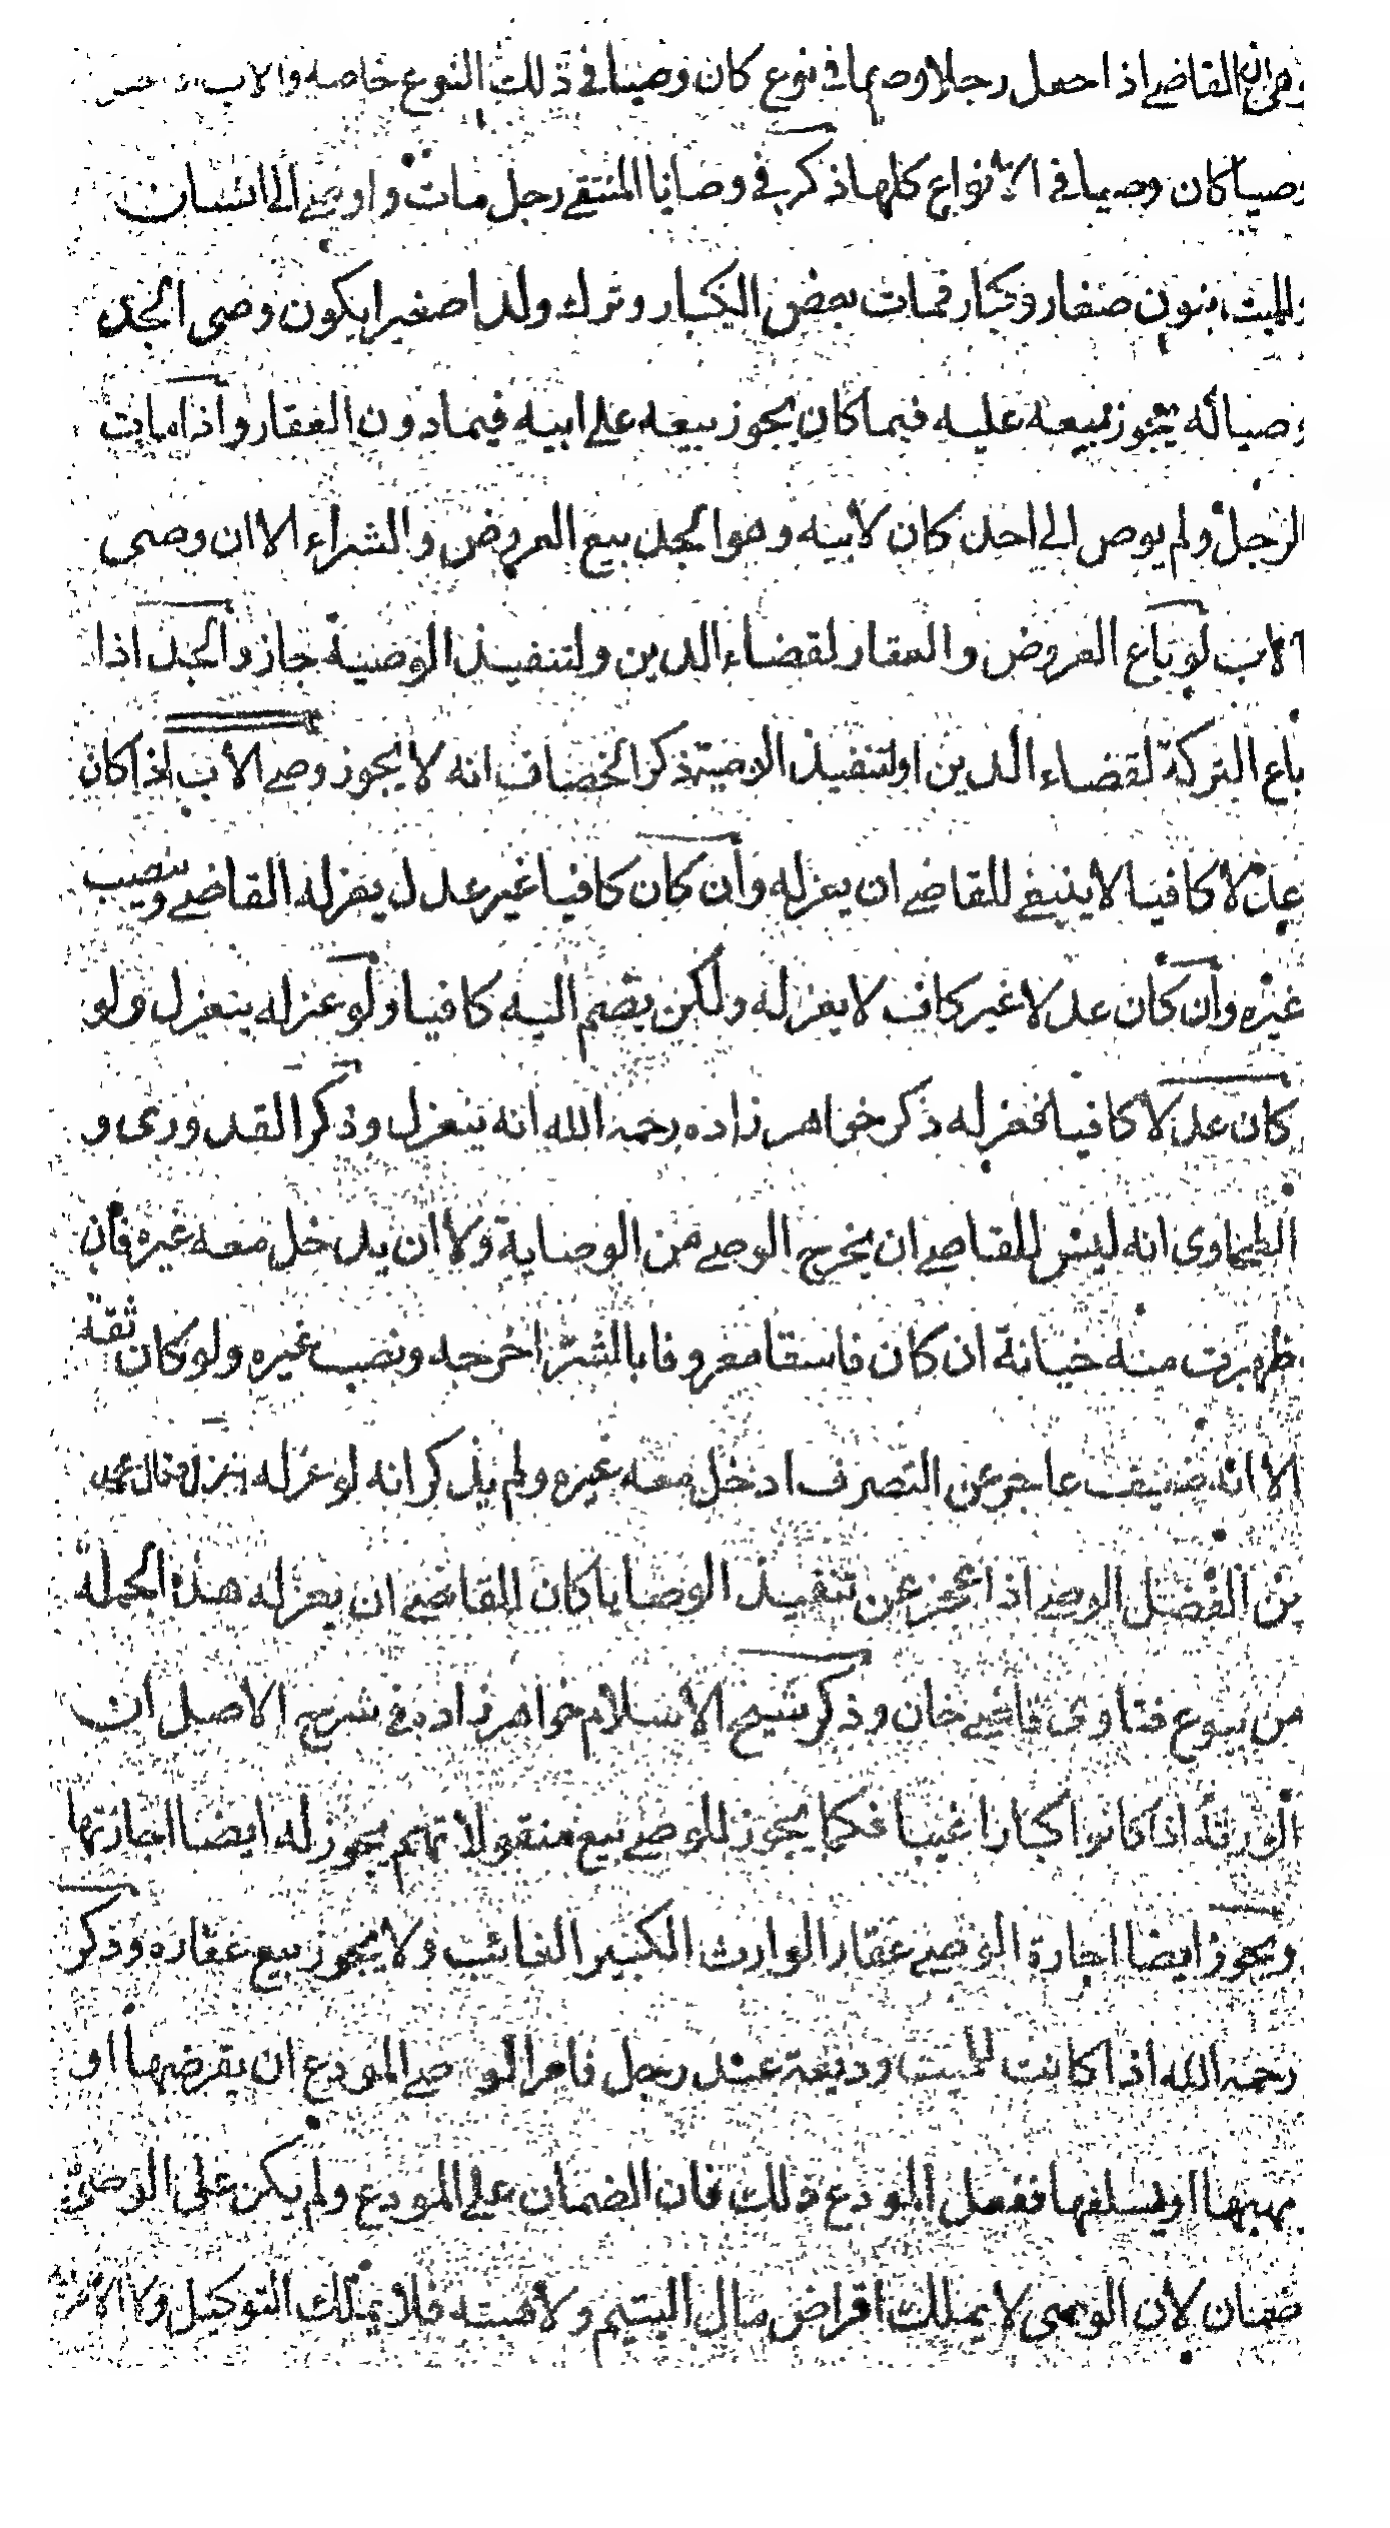 القاضي اذا جعل رجلا وصيا في نوع كان وصيا في ذلك النوع خاصة والاب
وصيا كان وصيا في الانواع كلها ذكر في وصايا المنتقى رجل مات واوصى الى انسان
وللميت بنون صغار وكبار فمات بعض الكبار وترك ولدا صغيرا يكون وصى الجد
وصيا له يجوز بيعه عليه فيما كان يجوز بيعه على ابنه فيما دون العقار واذا مات
الرجل ولم يوص الى احد كان لابيه وهو الجد بيع العروض والشراء الا ان وصى
الاب لو باع العروض والعقار لقضاء الدين ولتنفيذ الوصية جاز والجد اذا
باع التركة لقضاء الدين او لتنفيذ الوصية ذكر الخصاف انه لا يجوز وصي الاب اذا كان
عدلا كافيا لا ينبغي للقاضي ان يعزله وان كان كافيا غير عدل يعزله القاضي وينصب
غيره وان كان عدلا غير كاف لا يعزله ولكن يضم اليه كافيا ولو عزله ينعزل ولو
كان عدلا كافيا فعزله ذكر خواهر زاده رحمه الله انه ينعزل وذكر القدورى و
الطحاوى انه ليس للقاضي ان يخرج الوصي من الوصاية ولا ان يدخل معه غيره فان
ظهرت منه خيانة ان كان فاسقا معروفا بالشر اخرجه ونصب غيره ولو كان ثقة
الا انه ضعيف عاجز عن التصرف ادخل معه غيره ولم يذكر انه لو عزله ينعزل وقال محمد
بن الفضل الوصي اذا عجز عن تنفيذ الوصايا كان للقاضي ان يعزله هذه الجملة
من بيوع فتاوى قاضي خان وذكر شيخ الاسلام خواهر زاده في شرح الاصل ان
الورثة اذا كانوا كبارا غيبا فكما يجوز للوصي بيع منقولاتهم يجوز له ايضا اجارتها
ويجوز ايضا اجارة الوصي عقار الوارث الكبير الغائب ولا يجوز بيع عقاره وذكر
رحمه الله اذا كانت للميت وديعة عند رجل فامر الوصي المودع ان يقرضها او
يهبها او يسلفها ففعل المودع ذلك فان الضمان على المودع ولم يكن على الوصى
ضمان لان الوصى لا يملك اقراض مال اليتيم ولا هبته فلا يملك التوكيل